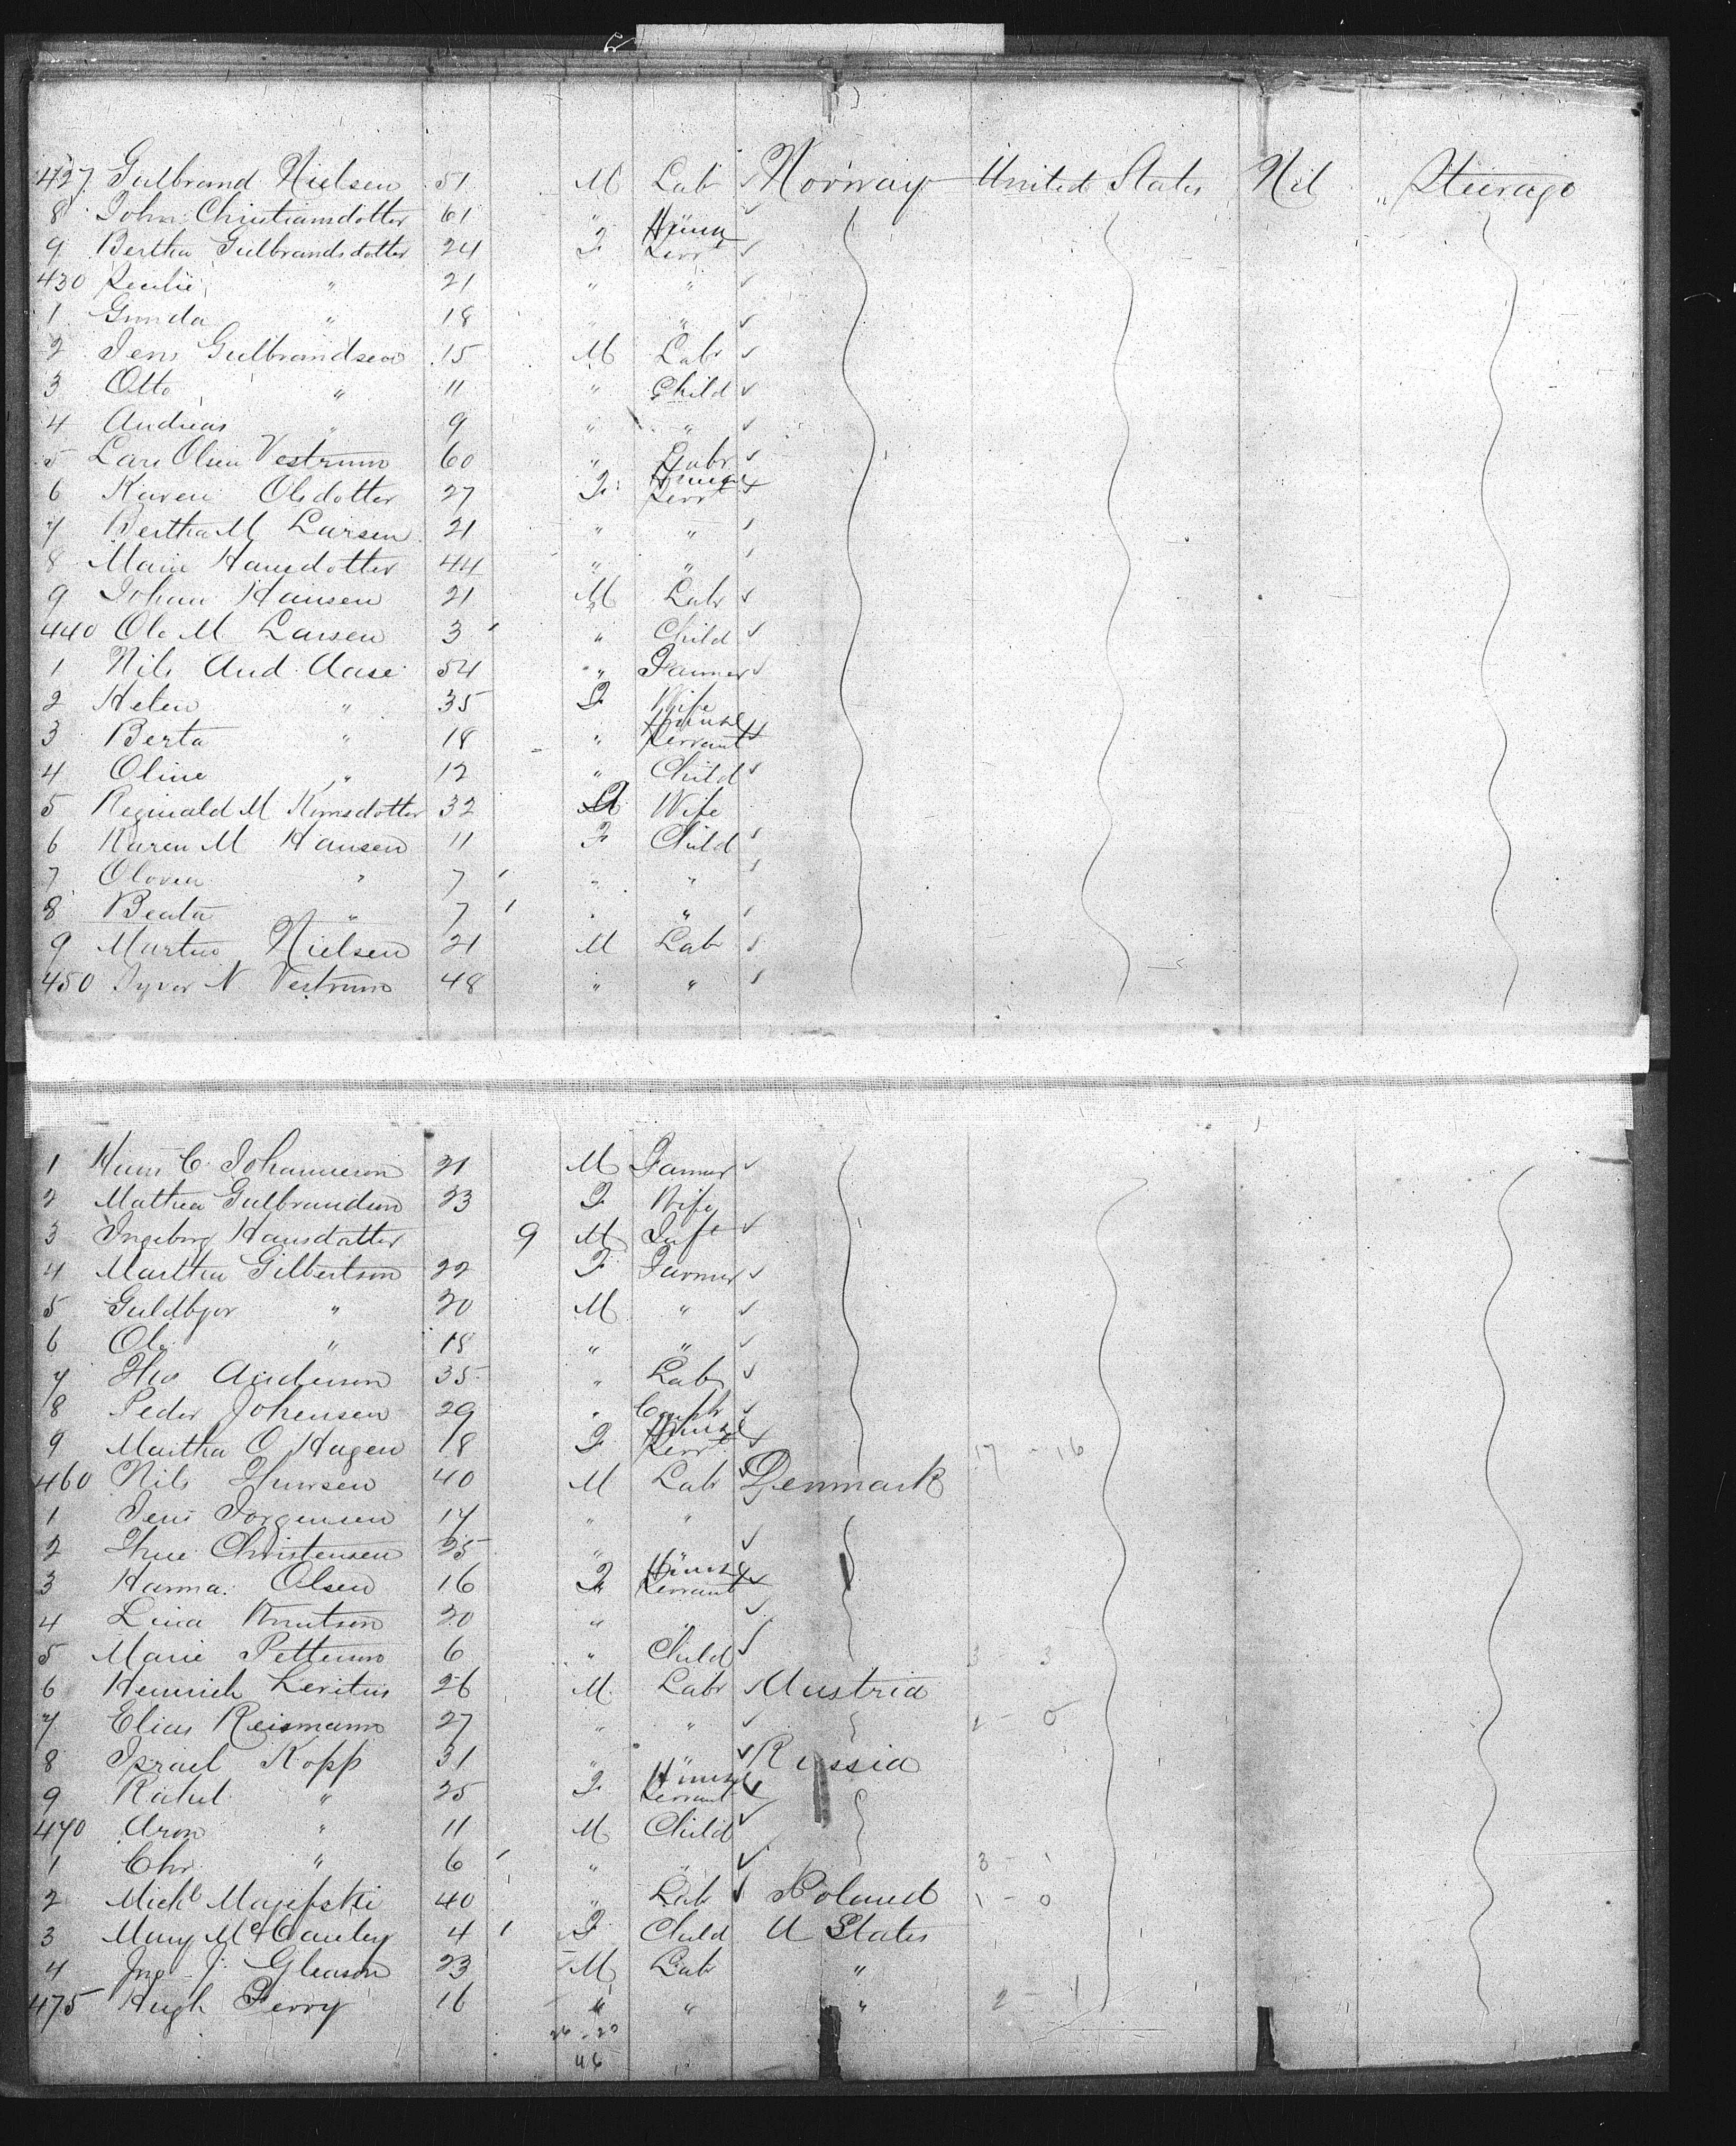 427 Gulbrand Nielsen 51 M Labr Norway United States Nil Steerage
8 John Christiansdotter 61 "
9 Bertha Gulbrandsdotter 24 F House Servt
430 Cecilie " 21 " "
1 Gunda " 18 " "
2 Jens Gulbrandsen 15 M Labr
3 Otto " 11 " Child
4 Andreas " 9 " "
5 Lars Olsen Vestrum 60 " Labr
6 Karen Olsdotter 27 F House Servt
7 Bertha M Larsen 21 " "
8 Marie Hansdotter 44 " "
9 Johan Hansen 21 M Labr
440 Ole M Larsen 3 " Child
1 Nils And. Aase 54 " Farmer
2 Helen " 35 F Wife
3 Berta " 18 " House Servant
4 Oline " 12 " Child
5 Reginald M 32 Wife
6 Karen M Hansen 11 F Child
7 Olovea " 7 " "
8 Beata " 7 " "
9 Martin Nielsen 21 M Lab
450 Syver N Vestrum 48 " "
1 Hans C. Johannesen 21 M Farmer
2 Mathea Gulbrandsen 23 F Wife
3 Ingeborg Hansdatter 9 M Inft
4 Martha Gilbertson 22 F Farmer
5 Guldbjor " 20 M "
6 Ole " 18 " "
7 Anderson 35 " Lab
8 Peder Johensen 29 "
9 Martha O Hagen 18 F House Servt 17 - 16
460 Nils Thursen 40 M Labr Denmark
1 Jens Jorgensen 17 " "
2 Christensen 25 "
3 Hanna Olsen 16 F House Servant
4 Lina Knutson 20 " "
5 Marie Petterson 6 " Child 3 - 3
6 Heinrich Levitus 26 M Labr Austria
7 Elias Reismann 27 " " 2 - 0
8 Israel Kopp 31 " " Russia
9 Rahel " 25 F House Servant
470 Aron " 11 M Child
1 Chr " 6 " " 3 - 1
2 Michl Majefski 40 " Lab Poland 1 - 0
3 Mary McCauley 4 F Child U States
4 Jno J. Gleason 23 M Lab "
475 Hugh Ferry 16 " " " 2 - 1
46